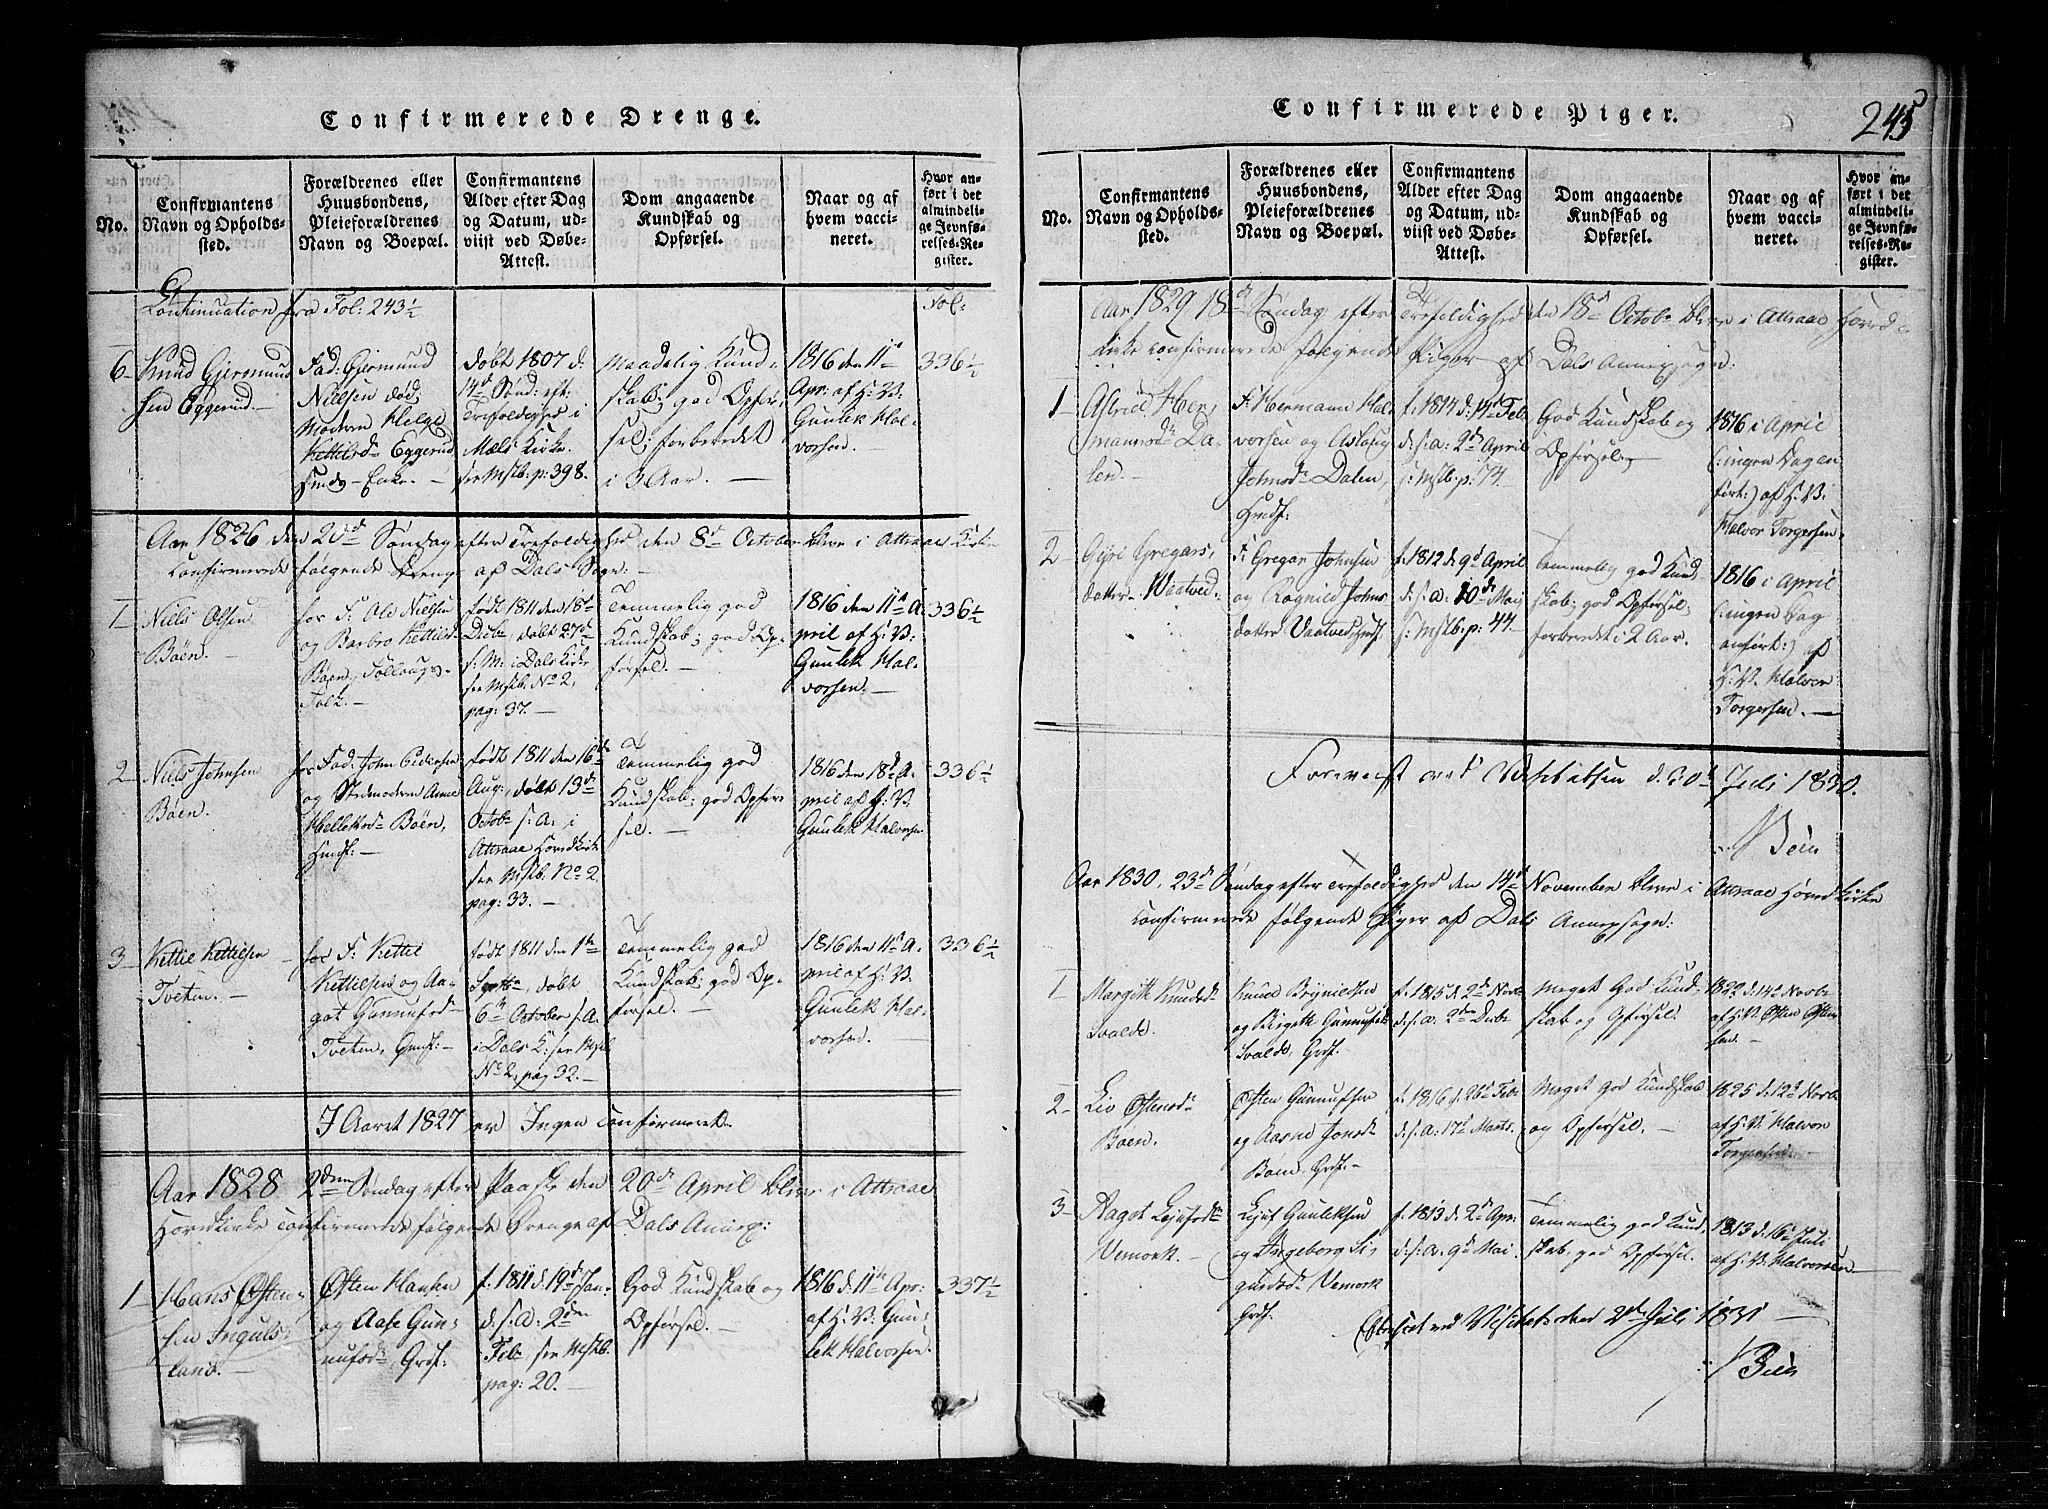 Confirmerede Drenge.
No.
Confirmantens Navn og Opholdssted.
Forældrenes eller Huusbondens, Pleieforældrenes Navn og Boepæl.
Confirmantens Alder efter Dag og Datum, udviist ved Døbe-Attest.
Dom angaaende Kundskab og Opførsel.
Naar og af hvem vaccineret.
Hvor anført i det almindelige Jevnførelses-Register.
Continuation fra Fol: 243½
Fol:
6
Knud Gjermund
sen Eggerud
Fad: Gjermund
Nielsen død;
Moderen Helge
Kettilsd Eggerud
Enke.
døbt 1807 d:
14d Sønd: eft:
Trefoldighed i
Mæls Kirke.
see Mstb: p: 398.
Maadelig Kund
skab; god Opfør
sel; forberedet
i 3 Aar.
1816 den 11te
Apr: af H: V:
Gunlek Hal-
vorsen.
336½
Aar 1826 den 20de Søndag efter Trefoldighed den 8de October bleve i Attraae Kirke
confirmerede følgende Drenge af Dals Sogn.
1
Niels Olsen
Böen.
for F: Ole Nielsen
og Barbro Kettilsd
Böen,
Folk.
født 1811 den 18de
Decbr, døbt 27de
s: M: i Dals Kirke
see Mstb. No 2,
pag: 37.
Temmelig god
Kundskab; god Op-
førsel.
1816 den 11te A-
pril af H: V:
Gunlek Hal-
vorsen.
336½
2
Niels Johnsen
Böen.
for Fad: John Pedersen
og Stedmoderen Anne
Helleksd Böen,
født 1811 den 16de
Aug:, døbt 13de
Octobr s: A: i
Attraae Hovedkirke
see Mstb. No 2
pag: 33.
Temmelig god
Kundskab; god Opfør
sel.
1816 den 18d A-
pril af H: V:
Gunlek Halvorsen
336½
3
Kettil Kettilsen
Tveten.
for F: Kettil
Kettilsen og Aa-
got Gunnufsd
Tveten,
født 1811 den 1te
Septbr, døbt
6te October s: A:
i Dals K: see Mstb
No 2, pag 32.
Temmelig god
Kundskab; god Op-
førsel.
1816 den 11te A-
pril af H: V:
Gunlek Hal-
vorsen.
336½
I Aaret 1827 er Ingen confirmeret.
Aar 1828 2den Søndag efter Paaske den 20de April bleve i Attraae
Hovedkirke confirmerede følgende Drenge af Dals Annexs:
1
Hans Østen-
sen Inguls-
land.
Østen Hansen
og Aase Gun-
nufsd, Grdf:
f. 1811 d: 19d Jan-
d: s: a: 2den
Feb, see Mstb.
pag: 20.
God Kundskab og
Opførsel.
1816 d: 11te Apr:
af H: V: Gun-
lek Halvorsen.
337½
Confirmerede Piger.
245
No.
Confirmantens Navn og Opholdssted.
Forældrenes eller Huusbondens, Pleieforældrenes Navn og Boepæl.
Confirmantens Alder efter Dag og Datum, udviist ved Døbe-Attest.
Dom angaaende Kundskab og Opførsel.
Naar og af hvem vaccineret.
Hvor anført i det almindelige Jevnførelses-Register.
Aar 1829 18de Søndag efter Trefoldighed den 18de Octobr bleve i Attraae Hoved-
Kirke confirmerede følgende Piger af Dals Annexsogn:
1
Astrid Her-
mannsd Da-
len.
F: Hermann Hal-
vorsen og Aslaug
Johnsd Dalen,
f. 1814 d: 14d Feb
d: s: a: 2de April
s: Mstb: p: 74.
God Kundskab og
Opførsel
1816 i April
(: ingen Dag an
ført :) af H: V:
Halvor Torgersen.
2
Gyri Gregars-
datter Vaatved
F: Gregar Johnsen
og Ragnild Johns
datter Vaatved,
f. 1812 d: 9d April
d: s: a: 10de Maj
s: Mstb: p: 44
Temmelig god Kund
skab; god Opførsel;
forberedet i 2 Aar.
1816 i April
(: ingen Dag
anført :) af
H: V: Halvor
Torgersen.
Foreviist ved Visitatsen d. 30te Juli 1830.
Aar 1830, 23de Søndag efter Trefoldighed den 14de November bleve i Attraae Hovedkirke
confirmerede følgende Piger af Dals Annexsogn:
1
Margitt Knudsd
Svalde.
Knud Brynildsen
og Birgitt Gunnufsd
Svalde, Grdf.
f. 1815 d: 2d Novb
d: s: a: 2den Decbr
Meget God Kund
skab og Opførsel.
1822 d: 14de Novbr
af H: V: Østen Østen
sen.
2
Liv Østensd
Böen.
Østen Gunnufsen
og Aasne Jonsd
Böen, Grdf.
f. 1816 d: 26d Febr
d: s: A: 17d Marts.
Meget god Kundskab
og Opførsel.
1825 d: 12te Novbr
af H: V: Halvor
Torgersen.
3
Aagot Lejufsd
Vemork.
Lejuf Gunleksen
og Ingeborg Si-
gurdsd Vemork
Grdf.
f. 1813 d: 2d Apr:
d: s: a: 9d Mai.
Temmelig god Kund-
skab, god Opførsel.
1813 d: 16de Juli
af H: V: Halvorsen
ved Visitats den 2de Juli 1831